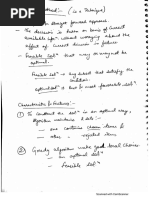 Method:- (is a Technique)
→ straight forward approach.
→ The decision is taken on basis of current
available info without worrying about the
effect of current decision in future.
→ Feasible Solⁿ that may or may not be
optimal.
Feasible Solⁿ → any subset that satisfy the
condition
optimal Solⁿ → best & most favourable solⁿ.
Characteristics & Features:-
① To construct the solⁿ in an optimal way,
algorithm maintains 2 sets:-
→ one contains chosen items &
→ other " rejected items
② Greedy algorithm make good local choices
→ an optimal solⁿ
→ feasible solⁿ
Scanned with CamScanner